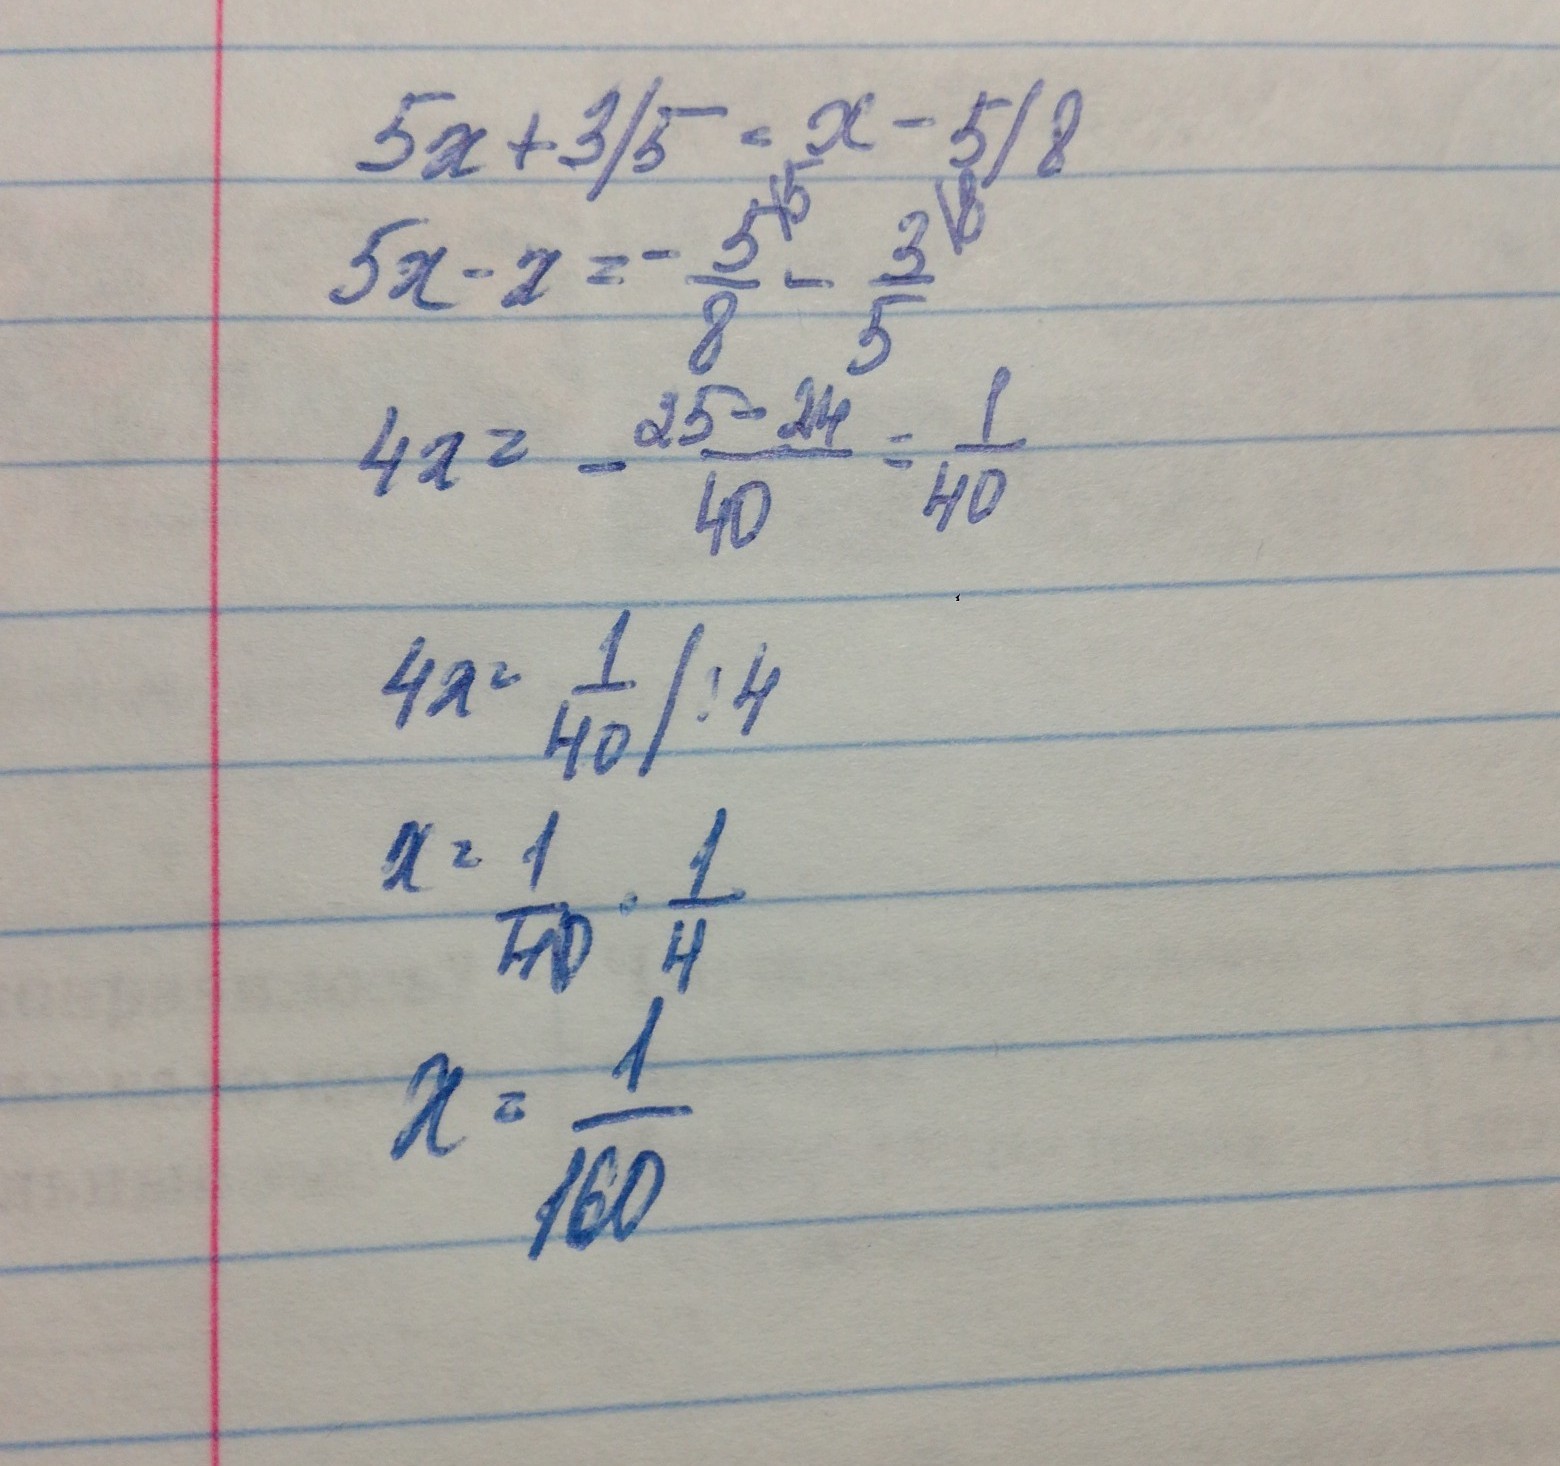 5x + 3/5 = x - 5/8
5x - x = - 5/8 \5 - 3/5 \8
4x = - 25 - 24/40 = 1/40
4x = 1/40 / : 4
x = 1/40 · 1/4
x = 1/160